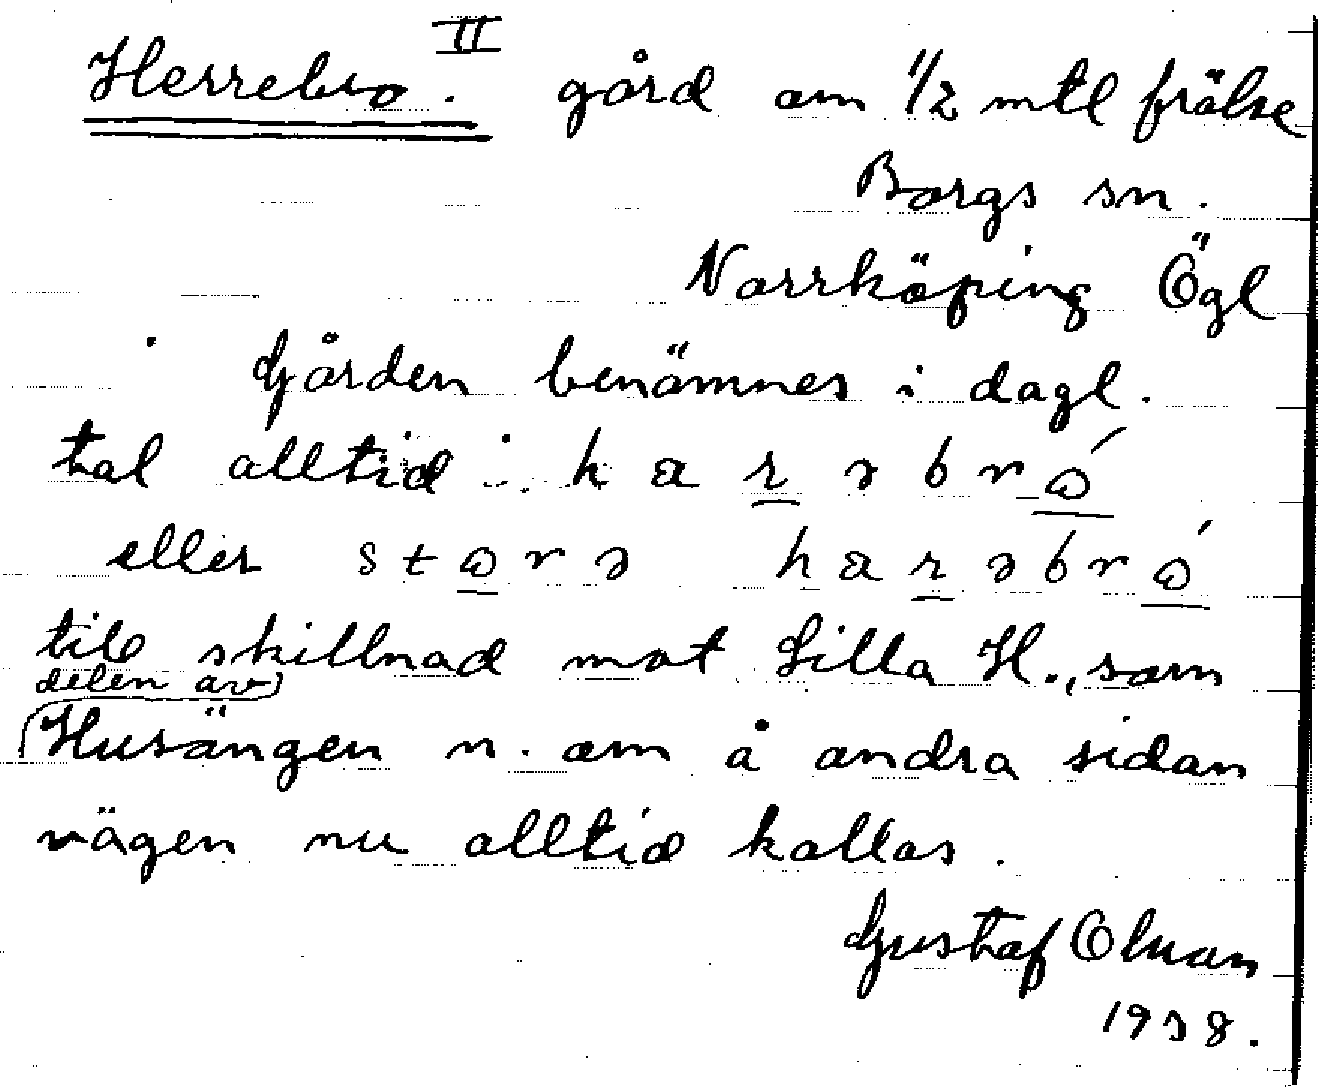 Herrebro. II gård om 1/2 mtl frälse
Borgs sn.
Norrköping Ögl
Gården benämnes i dagl.
tal alltid: h a r ə b r ó
eller s t o r ə h a r ə b r ó
till skillnad mot Lilla H., som
delen av
Husängen n. om å andra sidan
vägen nu alltid kallas.
Gustaf
1938.